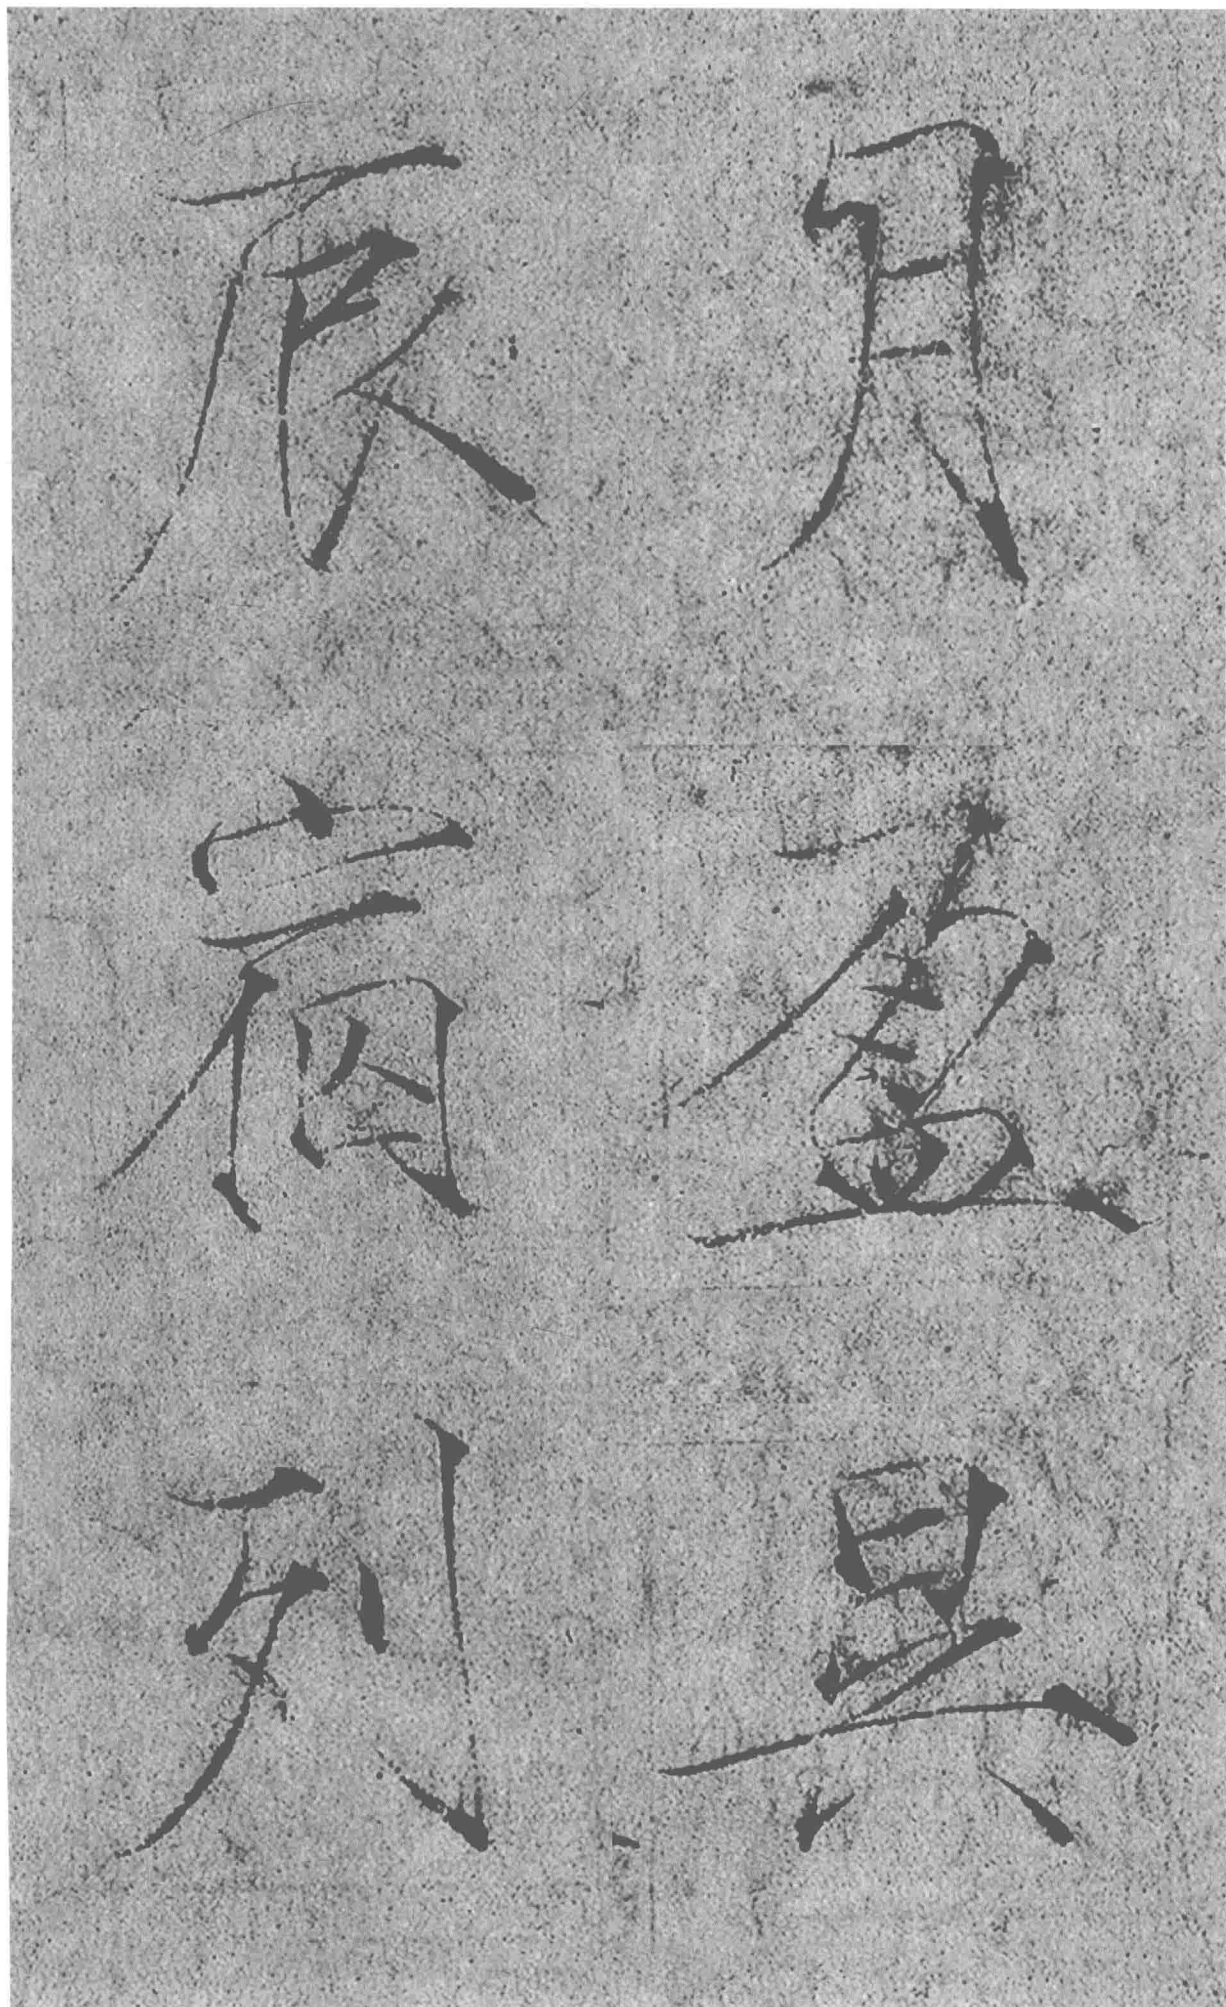 月盈昃
辰宿列